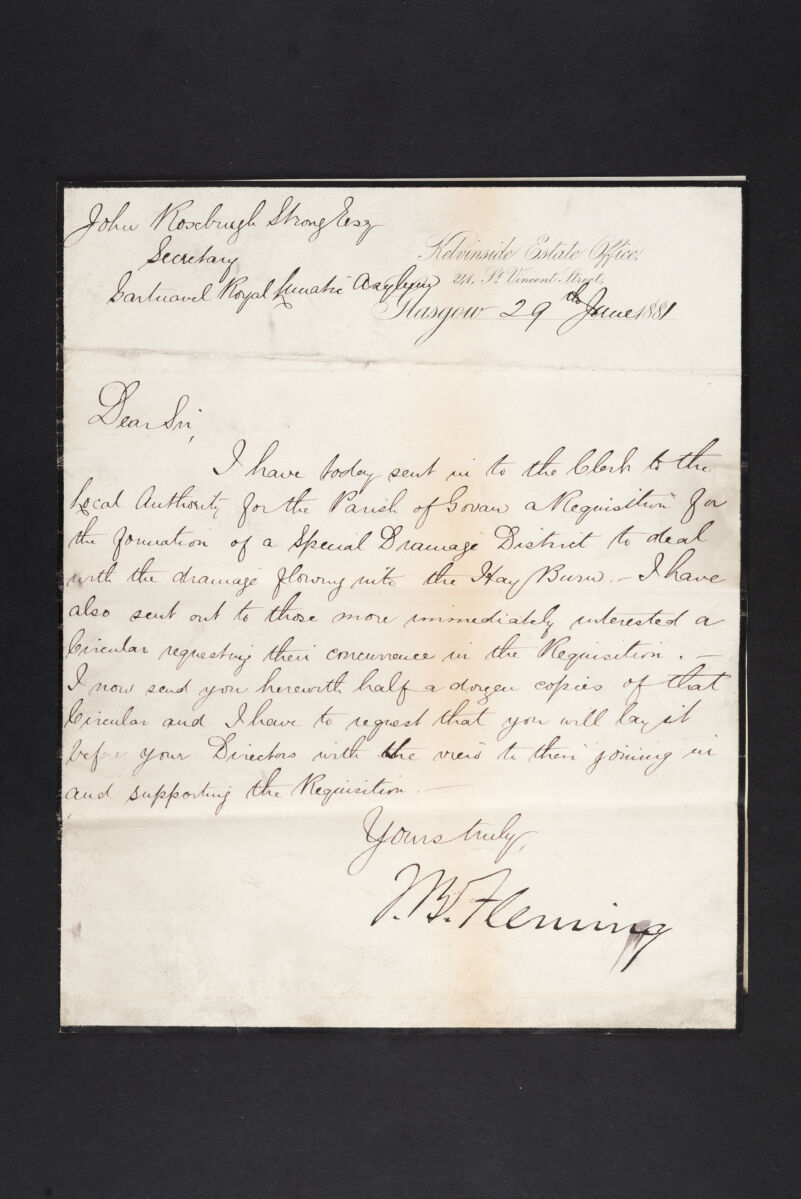 John Roseburgh Strong Esq
Secretary
Gartnavel Royal Lunatic Asylum
Kelvinside Estate Office,
24, St. Vincent Street,
Glasgow 29th June 1881
Dear Sir,
I have today sent in to the Clerk to the
Local Authority for the Parish of Govan a Requisition for
the formation of a Special Drainage District to deal
with the drainage flowing into the Hay Burn. – I have
also sent out to those more immediately interested a
Circular requesting their concurrence in the Requisition. –
I now send you herewith half a dozen copies of that
Circular and I have to request that you will lay it
before your Directors with the view to their joining in
and supporting the Requisition. –
Yours truly,
J. B. Fleming